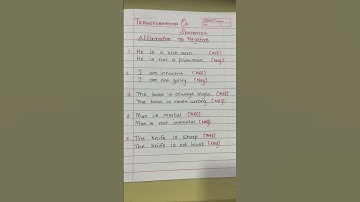 Transformation Of
Sentences
Affirmative to Negative
1. He is a rich man. (Aff)
He is not a poor man. (Neg)
2. I am innocent. (Aff)
I am not guilty. (Neg)
3. The boss is always right. (Aff)
The boss is never wrong. (Neg)
4. Man is mortal. (Aff)
Man is not immortal. (Neg)
5. The Knife is Sharp. (Aff)
The Knife is not blunt. (Neg)